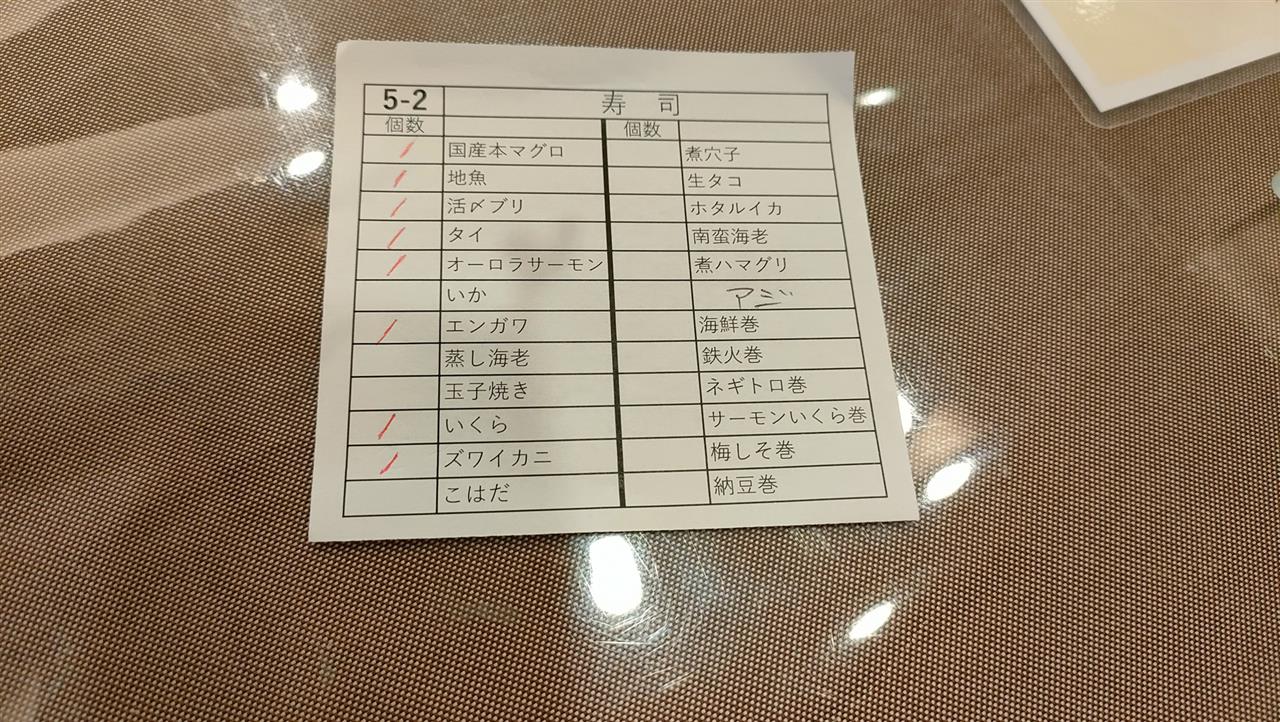 5-2 寿司
個数 個数
/ 国産本マグロ 煮穴子
/ 地魚 生タコ
/ 活〆ブリ ホタルイカ
/ タイ 南蛮海老
/ オーロラサーモン 煮ハマグリ
いか アジ
/ エンガワ 海鮮巻
蒸し海老 鉄火巻
玉子焼き ネギトロ巻
/ いくら サーモンいくら巻
/ ズワイカニ 梅しそ巻
こはだ 納豆巻